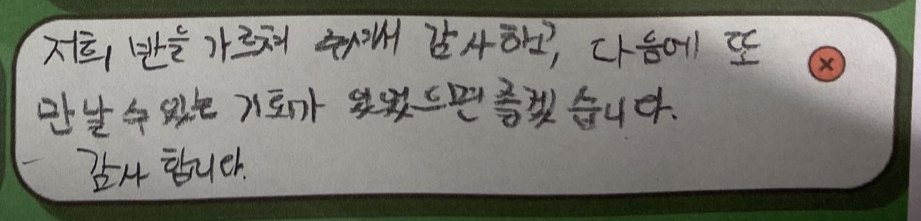 저희 반을 가르쳐 주셔서 감사하고, 다음에 또
만날 수 있는 기회가 있었으면 좋겠 습니다.
감사 합니다.